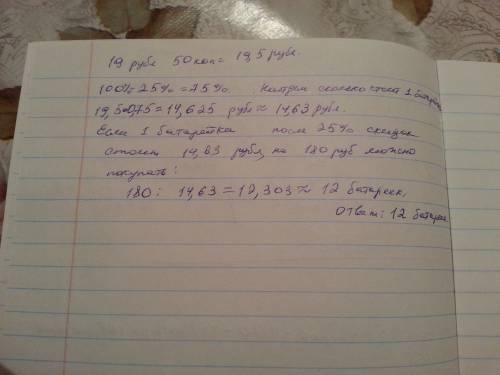 19 рубл 50 коп = 19,5 рубл.
100% - 25% = 75%. Найдем сколько стоит 1 батарейка
19,5·0,75 = 14,625 рубл ≈ 14,63 рубл.
Если 1 батарейка после 25% скидок
стоит 14,63 рубл, на 180 руб можно
покупать:
180 : 14,63 = 12,303 ≈ 12 батареек.
Ответ: 12 батареек